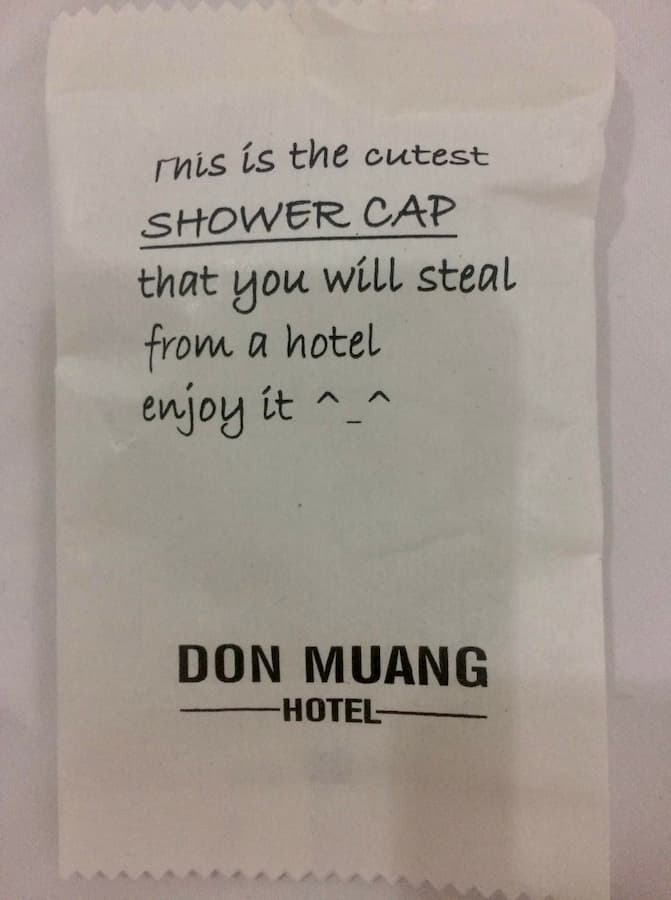 This is the cutest
SHOWER CAP
that you will steal
from a hotel
enjoy it ^_^
DON MUANG
HOTEL